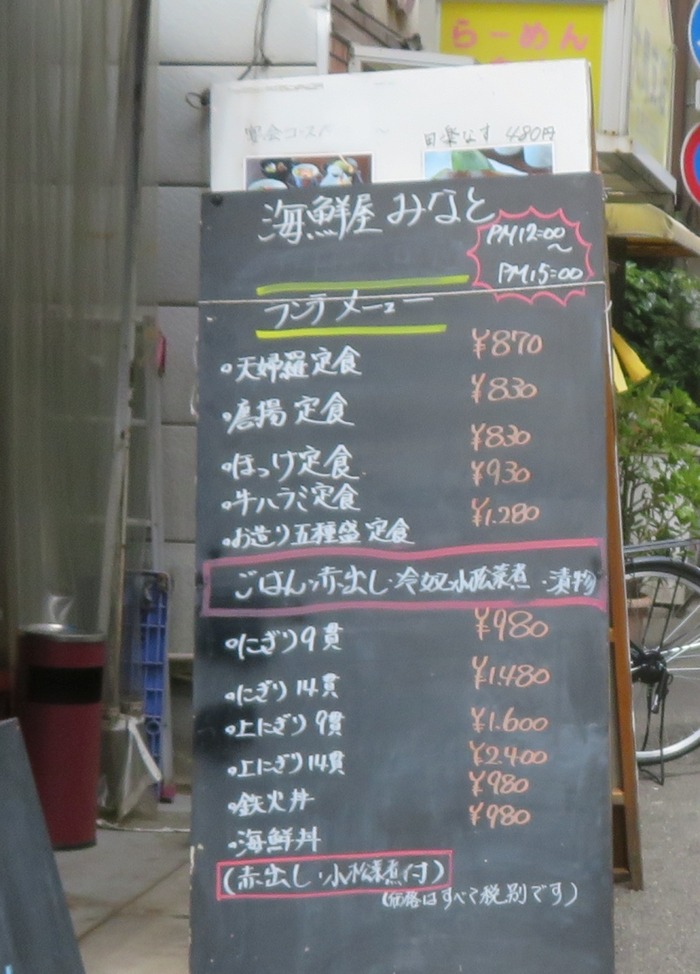 らーめん
宴会コース 田楽なす 480円
海鮮屋 みなと
PM12:00
～
PM15:00
ランチ メニュー
・天婦羅定食 ¥870
・唐揚定食 ¥830
・ほっけ定食 ¥830
・牛ハラミ定食 ¥930
・お造り五種盛定食 ¥1.280
ごはん・赤出し・冷奴・小松菜煮・漬物
・にぎり9貫 ¥980
・にぎり14貫 ¥1.480
・上にぎり9貫 ¥1.600
・上にぎり14貫 ¥2.400
・鉄火丼 ¥980
・海鮮丼 ¥980
(赤出し・小松菜煮付)
(価格はすべて税別です)